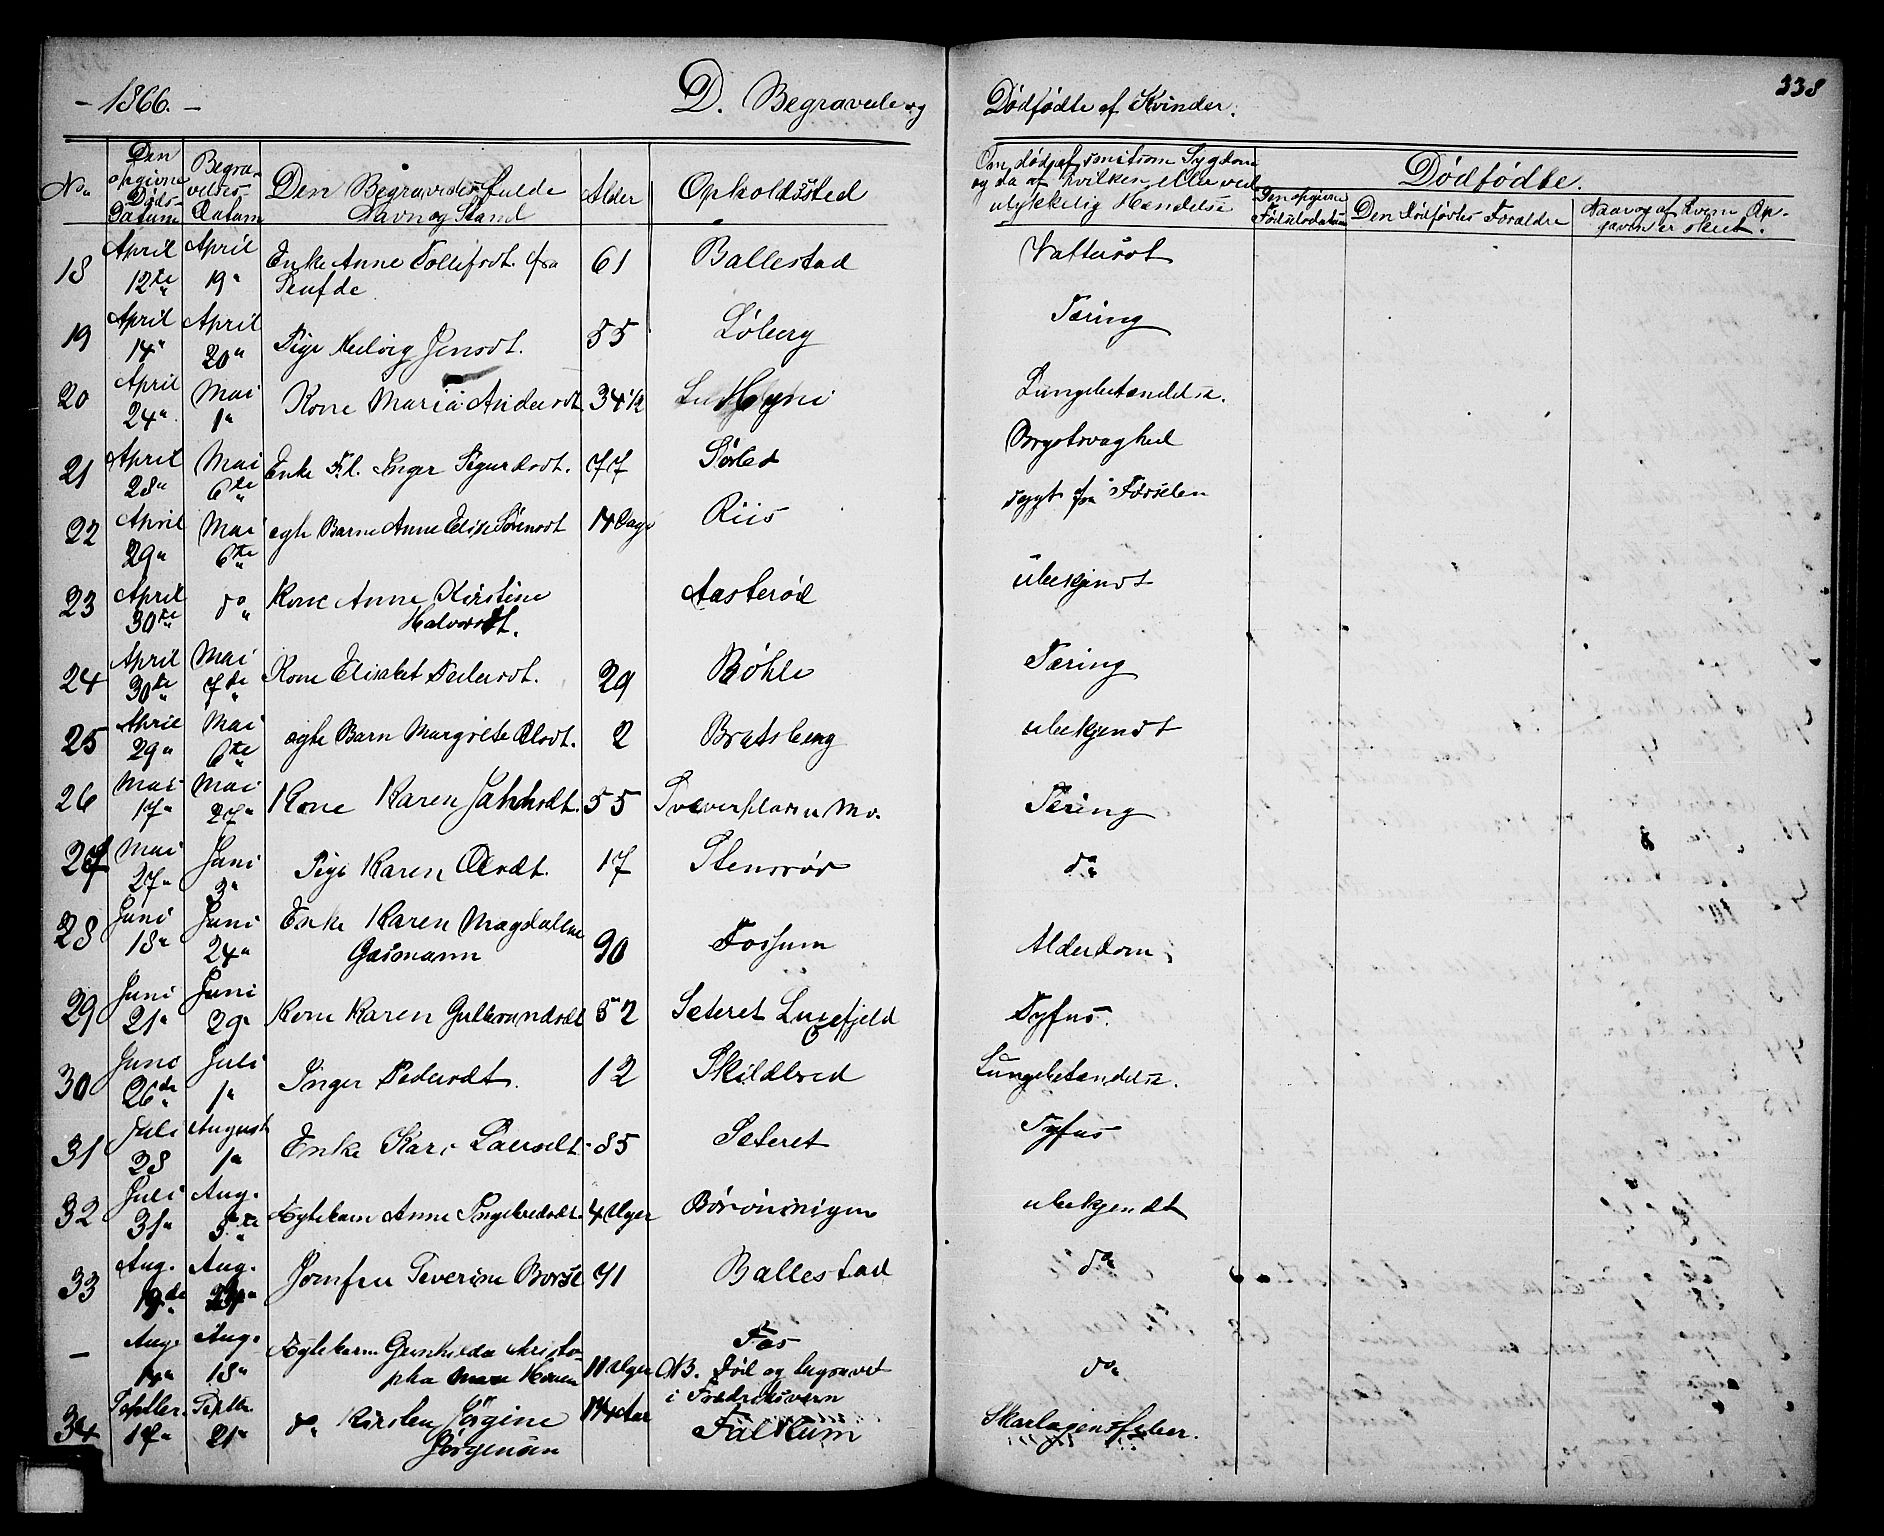 - 1866. -
D. Begravede og Dødfødte af Kvinder.
338
No
Den opgivne Døds-Datum
Begravelses Datum
Den Begravedes fulde Navn og Stand
Alder
Opholdssted
Om død af smitsom Sygdom og da af hvilken, eller ved ulykkelig Hændelse
Dødfødte.
Den opgivne Fødselsdatum
Den Dødfødtes Forældre
Naar og af hvem Opgaven er skeet.
18 April 12te April 19" Enke Anne Tollefsdt. fra 61 Ballestad Vattersot
19 April 14" April 20" Pige Hedvig Jensdt. 55 Løberg Tæring
20 April 24" Mai 1" Kone Maria Andersdt. 34 1/2 Lungebetændelse.
21 April 28" Mai 6te Enke Fl. Inger Sigurdsdt. 77 Sørbø Brystsvaghed
22 April 29" Mai 6te ægte Barn Anne Elise Sørensdt 14 Dage Riis sygt fra Fødselen
23 April 30te do Kone Anne Kirstine Halvorsdt. Aasterød ubekjendt
24 April 30te Mai 7de Kone Elisabet Pedersdt. 29 Bøhle Tæring
25 April 29" Mai 6te ægte Barn Margrete Olsdt. 2 Bratsberg ubekjendt
26 Mai 17" Mai 27" Kone Karen 55 Tæring
27 Mai 27" Juni 3" Pige Karen Olsdt. 17 Stensrød do
28 Juni 18" Juni 24" Enke Karen Magdalene Gasmann 90 Fossum Alderdom
29 Juni 21" Juni 29" Kone Karen Gulbrandsdt 52 Sæteret Luxefjeld Tyfus.
30 Juni 26de Juli 1" Inger Pedersdt. 12 Skildbred Lungebetændelse.
31 Juli 28 August 1" Enke Kari Larsdt. 85 Sæteret Tyfus
32 Juli 31" Aug. 5te Ægtebarn Anne Ingebredsdt. 4 Uger ubekjendt
33 Aug. Aug. Jomfru Severine Borse 71 Ballestad do
- Aug. 14" Aug. 18" Ægtebarn Gunhilda Kristopha 11 Uger Fos
NB. Død og begravet i Fredriksvern do
34 Septbr. 17" Septbr. 21" do Kirsten Jørgine Jørgensen Falkum Skarlagensfeber.